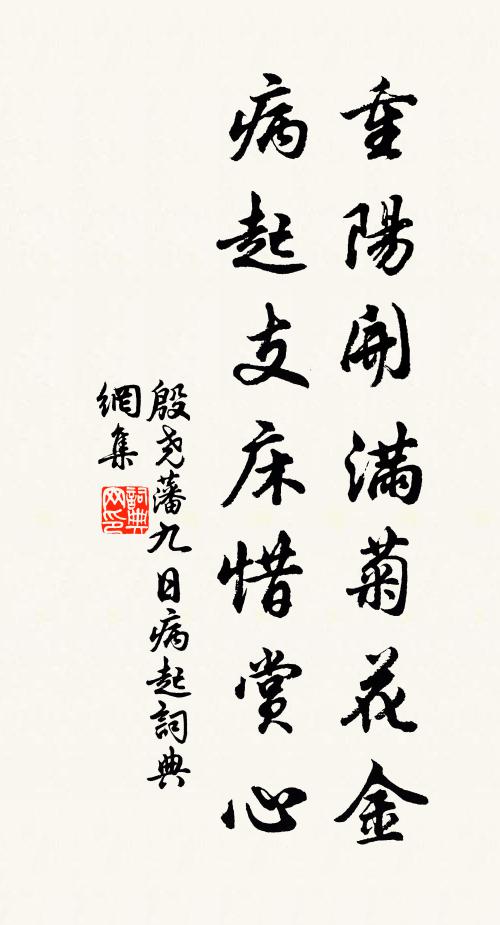 重陽開滿菊花金
病起支床惜賞心
殷堯藩九日病起詞典
網集
詞典
网印